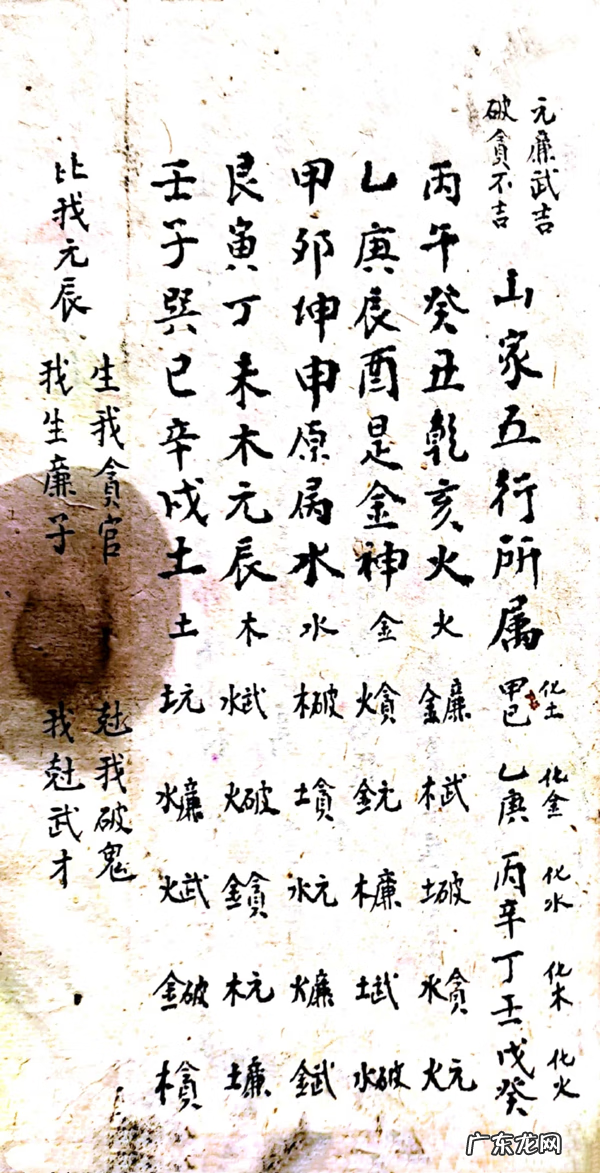 元廉武吉
破貪不吉
山家五行所属
化土 化金 化水 化木 化火
甲己 乙庚 丙辛 丁壬 戊癸
丙午癸丑乾亥火 火 金廉 木武 土破 水貪 火元
乙庚辰酉是金神 金 火貪 金元 木廉 土武 水破
甲卯坤申原属水 水 木破 土貪 水元 火廉 金武
艮寅丁未木元辰 木 水武 火破 金貪 木元 土廉
壬子巽巳辛戌土 土 土元 水廉 火武 金破 木貪
比我元辰
生我貪官
我生廉子
尅我破鬼
我尅武才
广东龙网